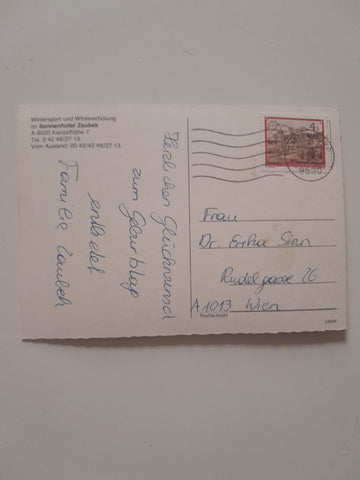 Wintersport und Wintererholung
im Sonnenhotel Zaubek
A-9520 Kanzelhöhe 7
Tel. 0 42 48/27 13
Vom Ausland: 00 43/42 48/27 13
Herzlichen Glückwunsch
zum Geburtstag
entbietet
Familie Zaubek
4
9520
Frau
Dr. Erika
26
A 1013 Wien